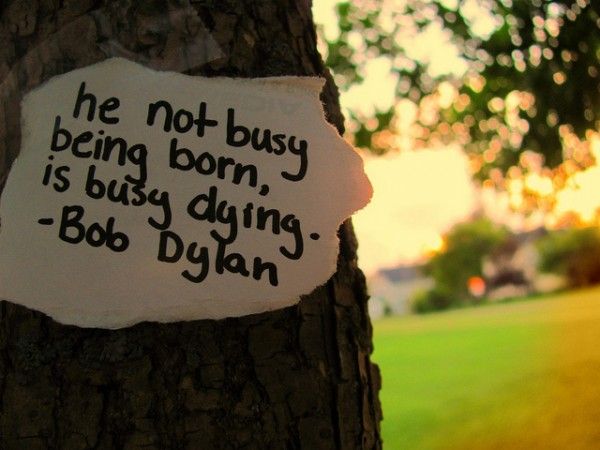 he not busy
being born,
is busy dying.
-Bob Dylan